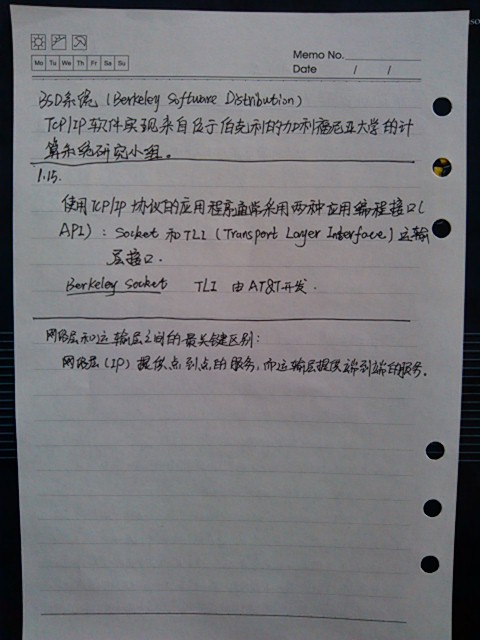 Memo No.
Mo Tu We Th Fr Sa Su
Date / /
BSD系统 (Berkeley Software Distribution)
TCP/IP 软件实现来自位于伯克利的加利福尼亚大学的计
算机系统研究小组。
1.15.
使用TCP/IP 协议的应用程序通常采用两种应用编程接口(
API): Socket 和 TLI (Transport Layer Interface) 运输
层接口.
Berkeley Socket TLI 由 AT&T开发.
网络层和运输层之间的最关键区别:
网络层 (IP) 提供点到点的服务, 而运输层提供端到端的服务.